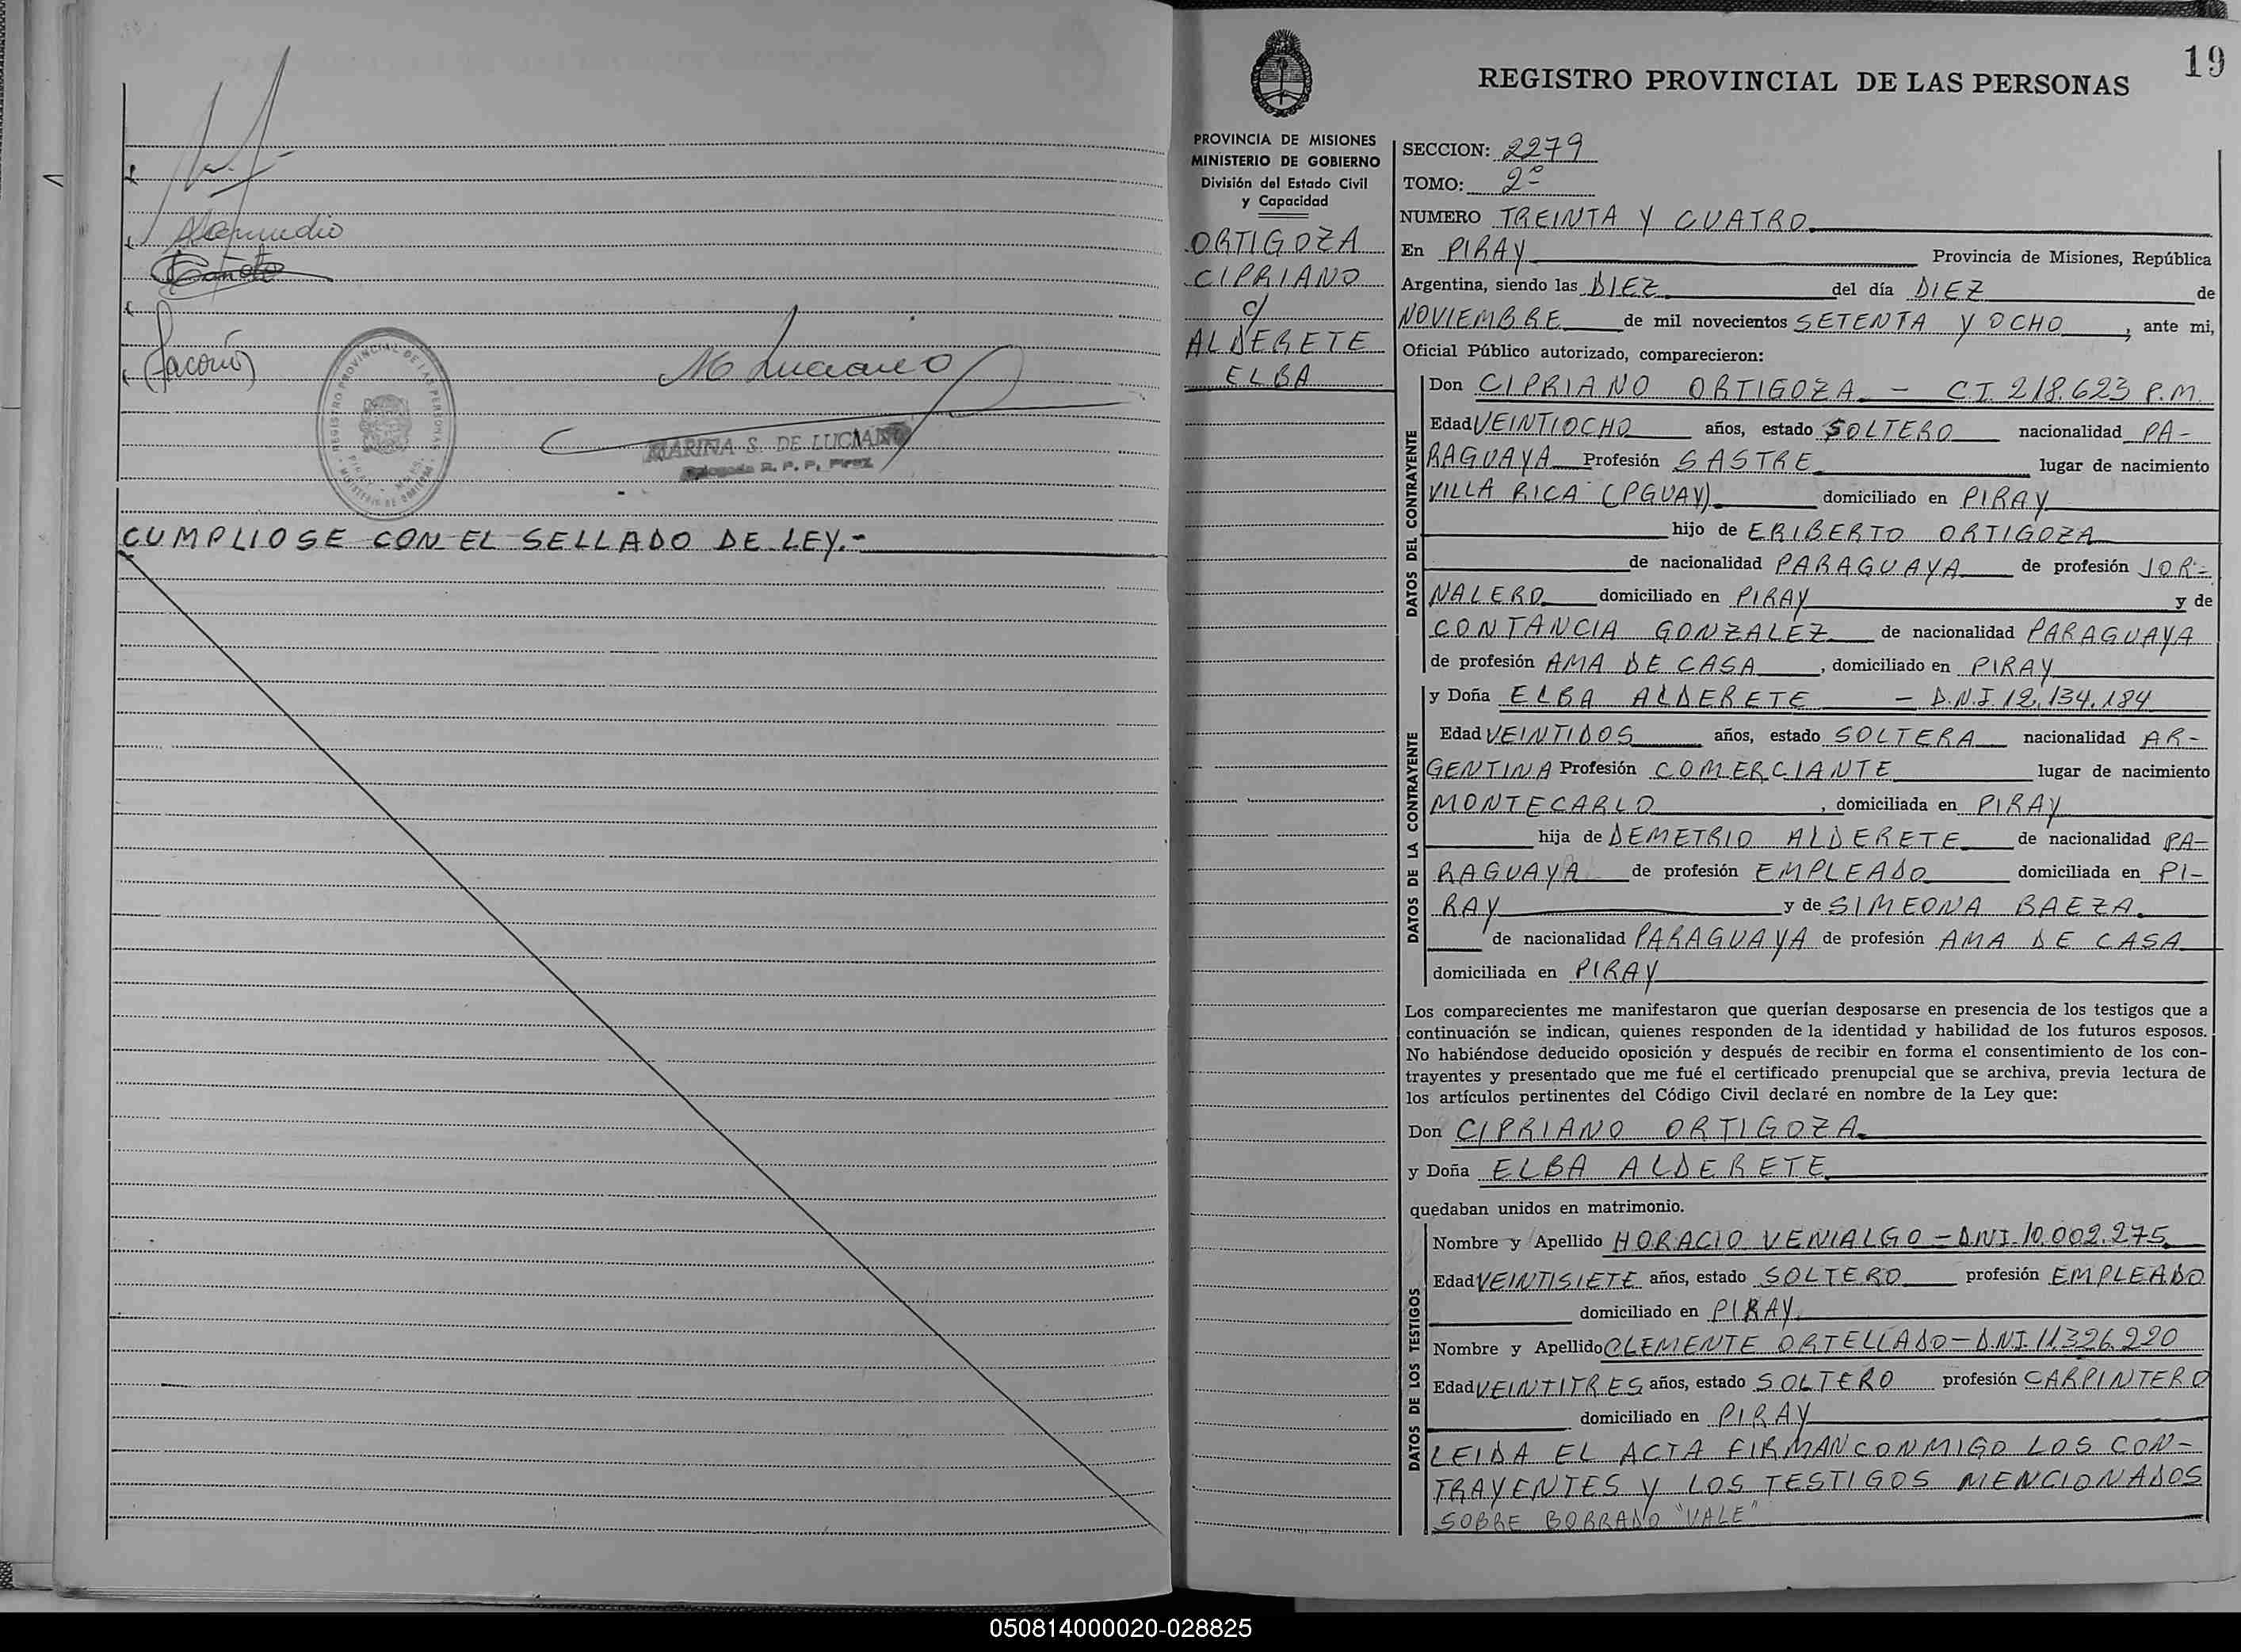 MARINA S. DE LUCIANO
Delegada R. P. P. Piray
CUMPLIOSE CON EL SELLADO DE LEY.-
19
REGISTRO PROVINCIAL DE LAS PERSONAS
PROVINCIA DE MISIONES
MINISTERIO DE GOBIERNO
División del Estado Civil
y Capacidad
ORTIGOZA
CIPRIANO
c/
ALDERETE
ELBA
SECCION: 2279
TOMO: 2º
NUMERO TREINTA Y CUATRO
En PIRAY Provincia de Misiones, República
Argentina, siendo las DIEZ del día DIEZ de
NOVIEMBRE de mil novecientos SETENTA Y OCHO, ante mi,
Oficial Público autorizado, comparecieron:
DATOS DEL CONTRAYENTE
Don CIPRIANO ORTIGOZA - C.I. 218.623 P.M.
Edad VEINTIOCHO años, estado SOLTERO nacionalidad PA-
RAGUAYA Profesión SASTRE lugar de nacimiento
VILLA RICA (PGUAY) domiciliado en PIRAY
hijo de ERIBERTO ORTIGOZA
de nacionalidad PARAGUAYA de profesión JOR-
NALERO domiciliado en PIRAY y de
CONTANCIA GONZALEZ de nacionalidad PARAGUAYA
de profesión AMA DE CASA, domiciliado en PIRAY
DATOS DE LA CONTRAYENTE
y Doña ELBA ALDERETE - D.N.I. 12.134.184
Edad VEINTIDOS años, estado SOLTERA nacionalidad AR-
GENTINA Profesión COMERCIANTE lugar de nacimiento
MONTECARLO, domiciliada en PIRAY
hija de DEMETRIO ALDERETE de nacionalidad PA-
RAGUAYA de profesión EMPLEADO domiciliada en PI-
RAY y de SIMEONA BAEZA
de nacionalidad PARAGUAYA de profesión AMA DE CASA
domiciliada en PIRAY
Los comparecientes me manifestaron que querían desposarse en presencia de los testigos que a
continuación se indican, quienes responden de la identidad y habilidad de los futuros esposos.
No habiéndose deducido oposición y después de recibir en forma el consentimiento de los con-
trayentes y presentado que me fué el certificado prenupcial que se archiva, previa lectura de
los artículos pertinentes del Código Civil declaré en nombre de la Ley que:
Don CIPRIANO ORTIGOZA
y Doña ELBA ALDERETE
quedaban unidos en matrimonio.
DATOS DE LOS TESTIGOS
Nombre y Apellido HORACIO VENIALGO - D.N.I. 10.002.275
Edad VEINTISIETE años, estado SOLTERO profesión EMPLEADO
domiciliado en PIRAY
Nombre y Apellido CLEMENTE ORTELLADO - D.N.I. 11.326.220
Edad VEINTITRES años, estado SOLTERO profesión CARPINTERO
domiciliado en PIRAY
LEIDA EL ACTA FIRMAN CONMIGO LOS CON-
TRAYENTES Y LOS TESTIGOS MENCIONADOS
SOBRE BORRADO "VALE"
050814000020-028825